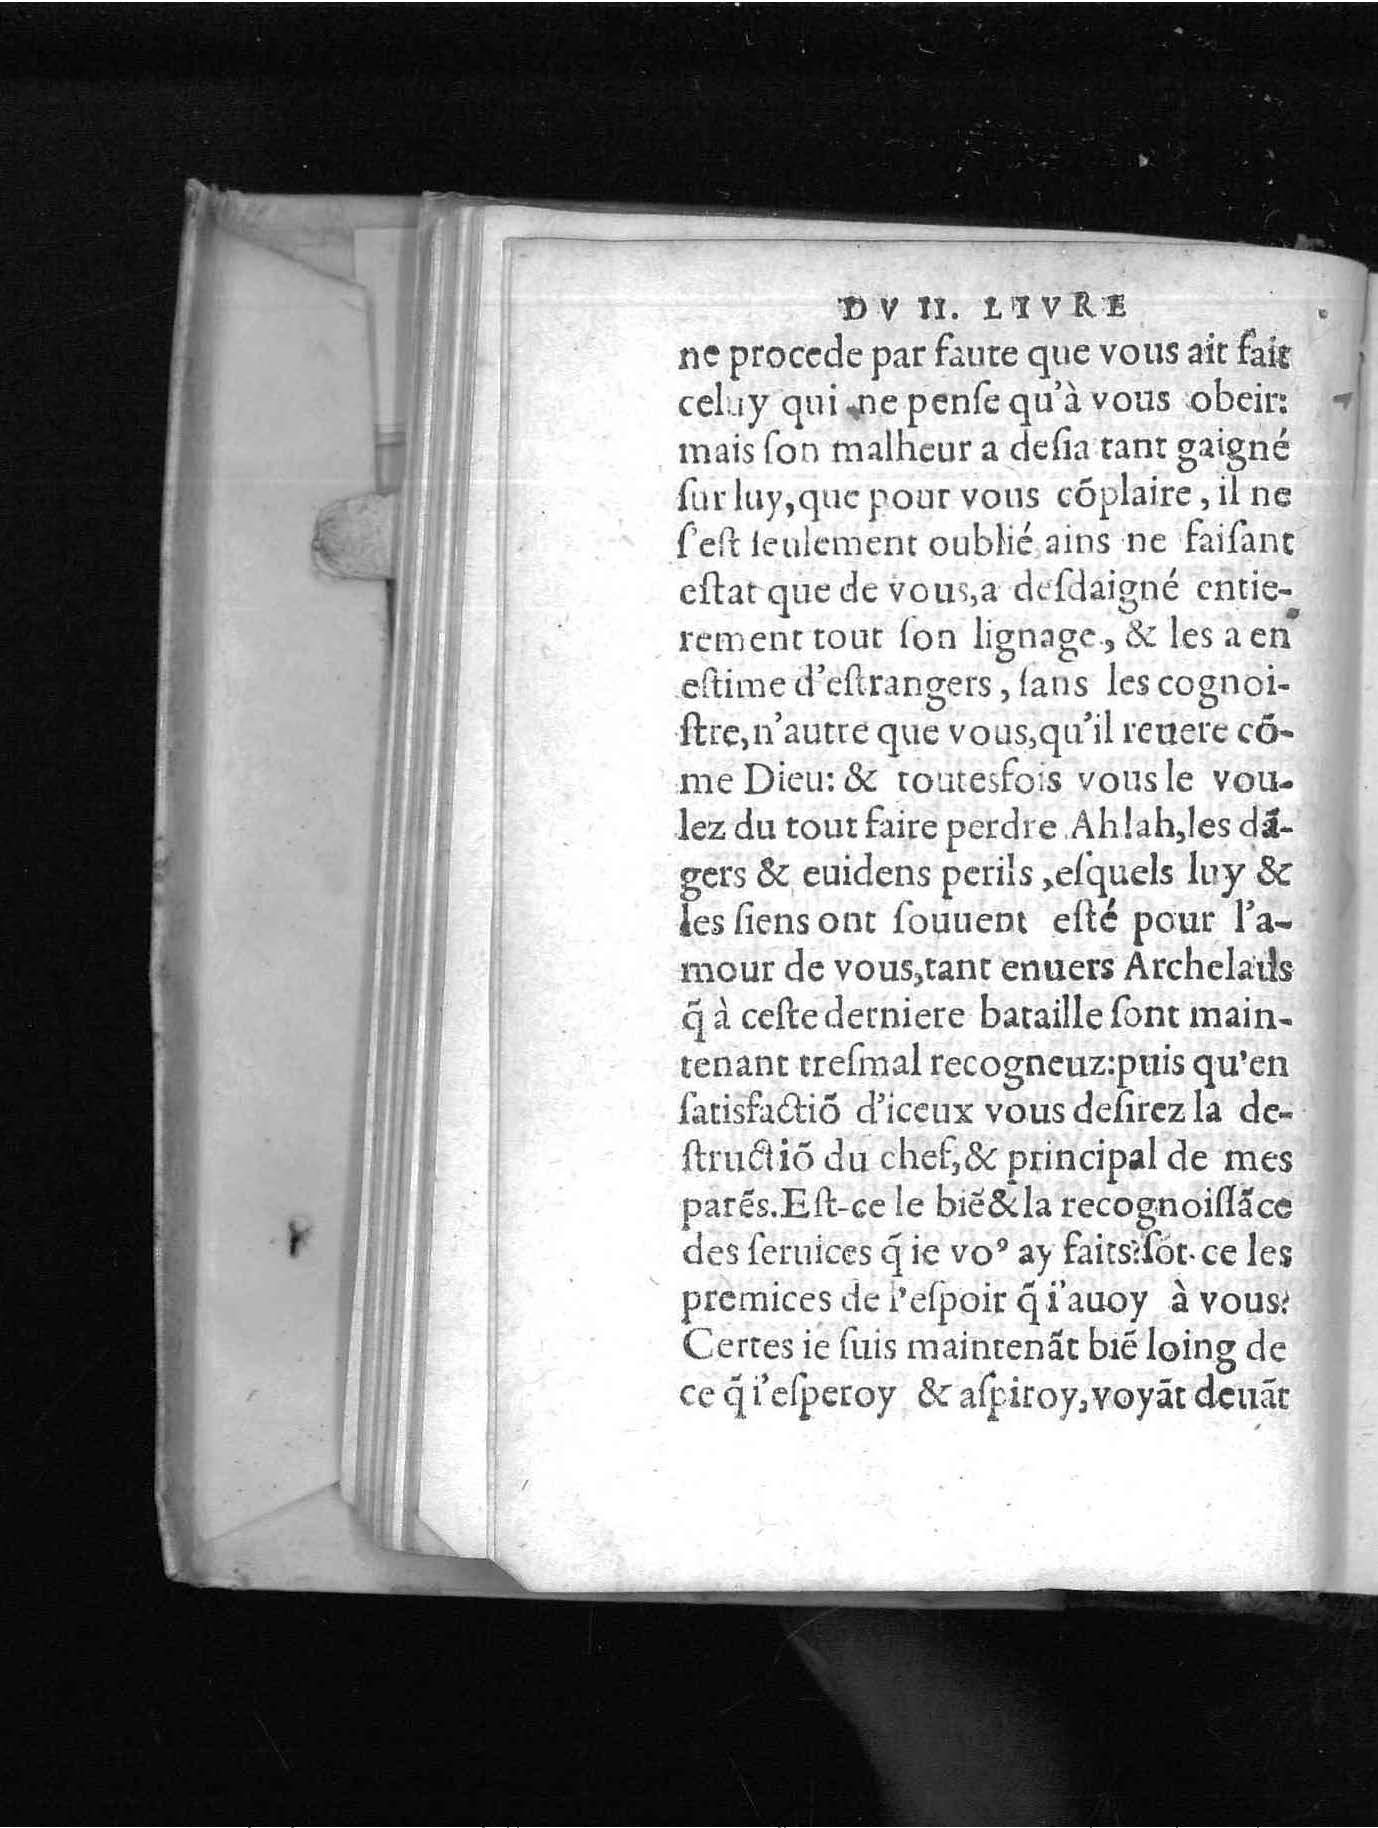 DV II. LIVRE
ne procede par faute que vous ait fait
celuy qui ne penſe qu'à vous obeir:
mais ſon malheur a deſia tant gaigné
ſur luy,que pour vous cõplaire, il ne
ſ'eſt ſeulement oublié ains ne faiſant
eſtat que de vous,a deſdaigné entie-
rement tout ſon lignage, & les a en
eſtime d'eſtrangers, ſans les cognoi-
ſtre,n'autre que vous,qu'il reuere cõ-
me Dieu: & toutesfois vous le vou-
lez du tout faire perdre Ah!ah,les dã-
gers & euidens perils ,eſquels luy &
les ſiens ont ſouuent eſté pour l'a-
mour de vous,tant enuers Archelaus
q̃ à ceſte derniere bataille ſont main-
tenant treſmal recogneuz:puis qu'en
ſatisfactiõ d'iceux vous deſirez la de-
ſtructiõ du chef,& principal de mes
parẽs.Eſt-ce le biẽ&la recognoiſſãce
des ſeruices q̃ ie voꝰ ay faits?ſõt-ce les
premices de l'eſpoir q̃ i'auoy à vous?
Certes ie ſuis maintenãt biẽ loing de
ce q̃ i'eſperoy & aſpiroy,voyãt deuãt